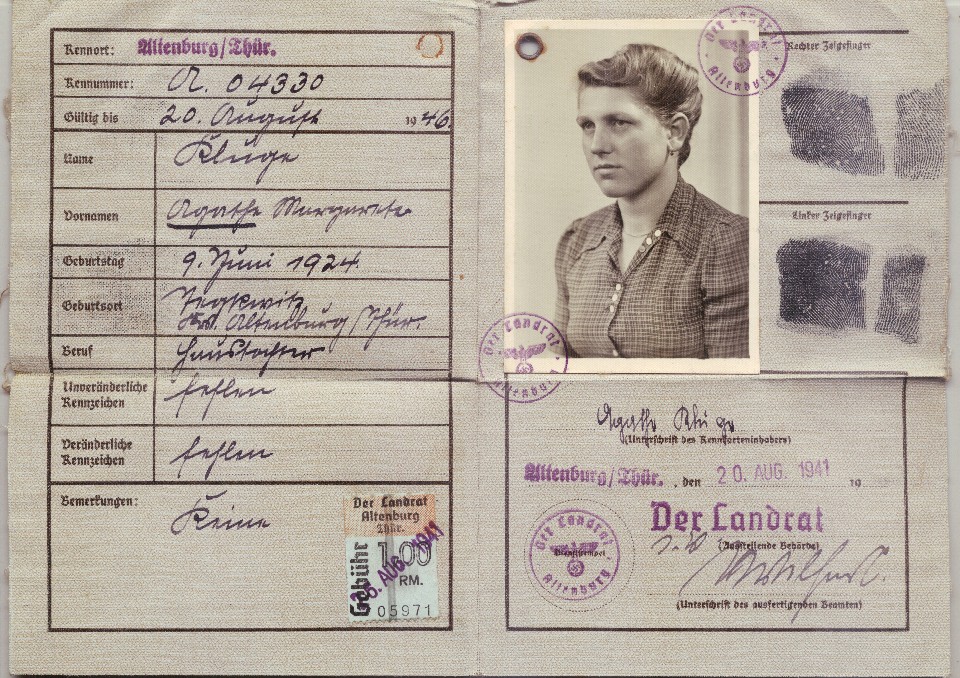 Kennort: Altenburg/Thür.
Kennummer: A. 04330
Gültig bis 20. August 1946.
Name Kluge
Vornamen Agathe Margarete
Geburtstag 9. Juni 1924.
Geburtsort Jegkwitz
Krs. Altenburg/Thür.
Beruf Haustochter
Unveränderliche Kennzeichen fehlen
Veränderliche Kennzeichen fehlen
Bemerkungen: Keine
Der Landrat
Altenburg
Thür.
Gebühr
1,00
RM.
AUG. 1941
05971
Der Landrat
Altenburg
Rechter Zeigefinger
Linker Zeigefinger
Der Landrat
Altenburg
Agathe Kluge
(Unterschrift des Kennkarteninhabers)
Altenburg/Thür. , den 20. AUG. 1941 19
Der Landrat
(Ausstellende Behörde)
Der Landrat
Dienststempel
Altenburg
(Unterschrift des ausfertigenden Beamten)